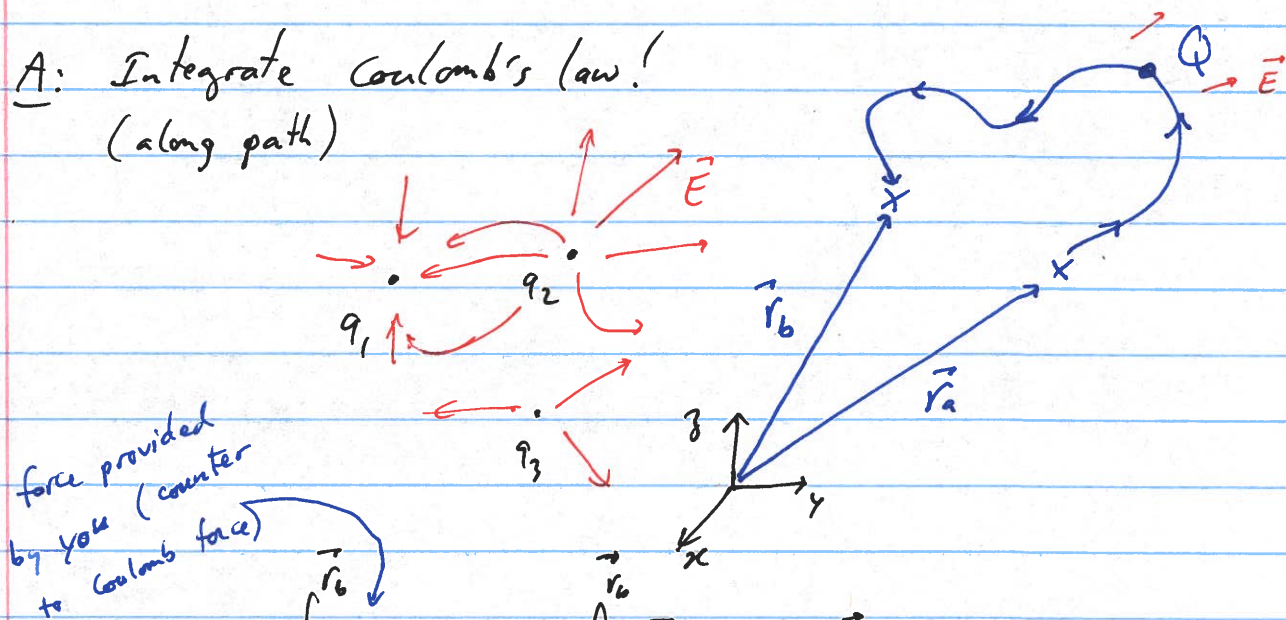 A: Integrate Coulomb's law!
(along path)
Q
E⃗
E⃗
q₁
q₂
q₃
r⃗_b
r⃗_a
z
y
x
force provided
by you (counter
to Coulomb force)
r⃗_b
r⃗_b